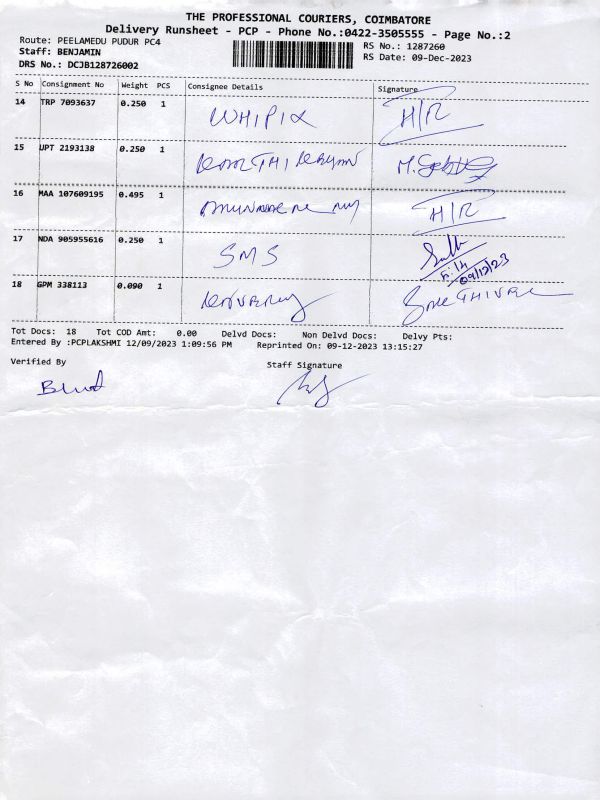 THE PROFESSIONAL COURIERS, COIMBATORE
Delivery Runsheet - PCP - Phone No.:0422-3505555 - Page No.:2
Route: PEELAMEDU PUDUR PC4
RS No.: 1287260
Staff: BENJAMIN
RS Date: 09-Dec-2023
DRS No.: DCJB128726002
S No Consignment No Weight PCS Consignee Details Signature
14 TRP 7093637 0.250 1 WHIPIX H/R
15 UPT 2193138 0.250 1
16 MAA 107609195 0.495 1 H/R
17 NDA 905955616 0.250 1 SMS
09/12/23
18 GPM 338113 0.090 1
Tot Docs: 18 Tot COD Amt: 0.00 Delvd Docs: Non Delvd Docs: Delvy Pts:
Entered By :PCPLAKSHMI 12/09/2023 1:09:56 PM Reprinted On: 09-12-2023 13:15:27
Verified By
Staff Signature